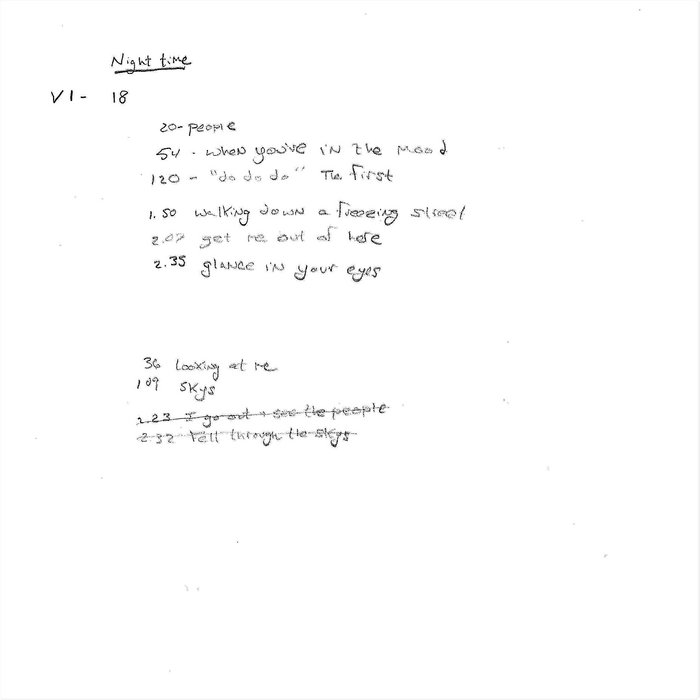 Night time
V1 - 18
20 - people
54 - when you've in the mood
120 - "do do do" The first
1.50 walking down a freezing street
2.07 get me out of here
2.35 glance in your eyes
36 Looking at me
109 skys
2.23 I go out + see the people
2 32 Fell through the skys